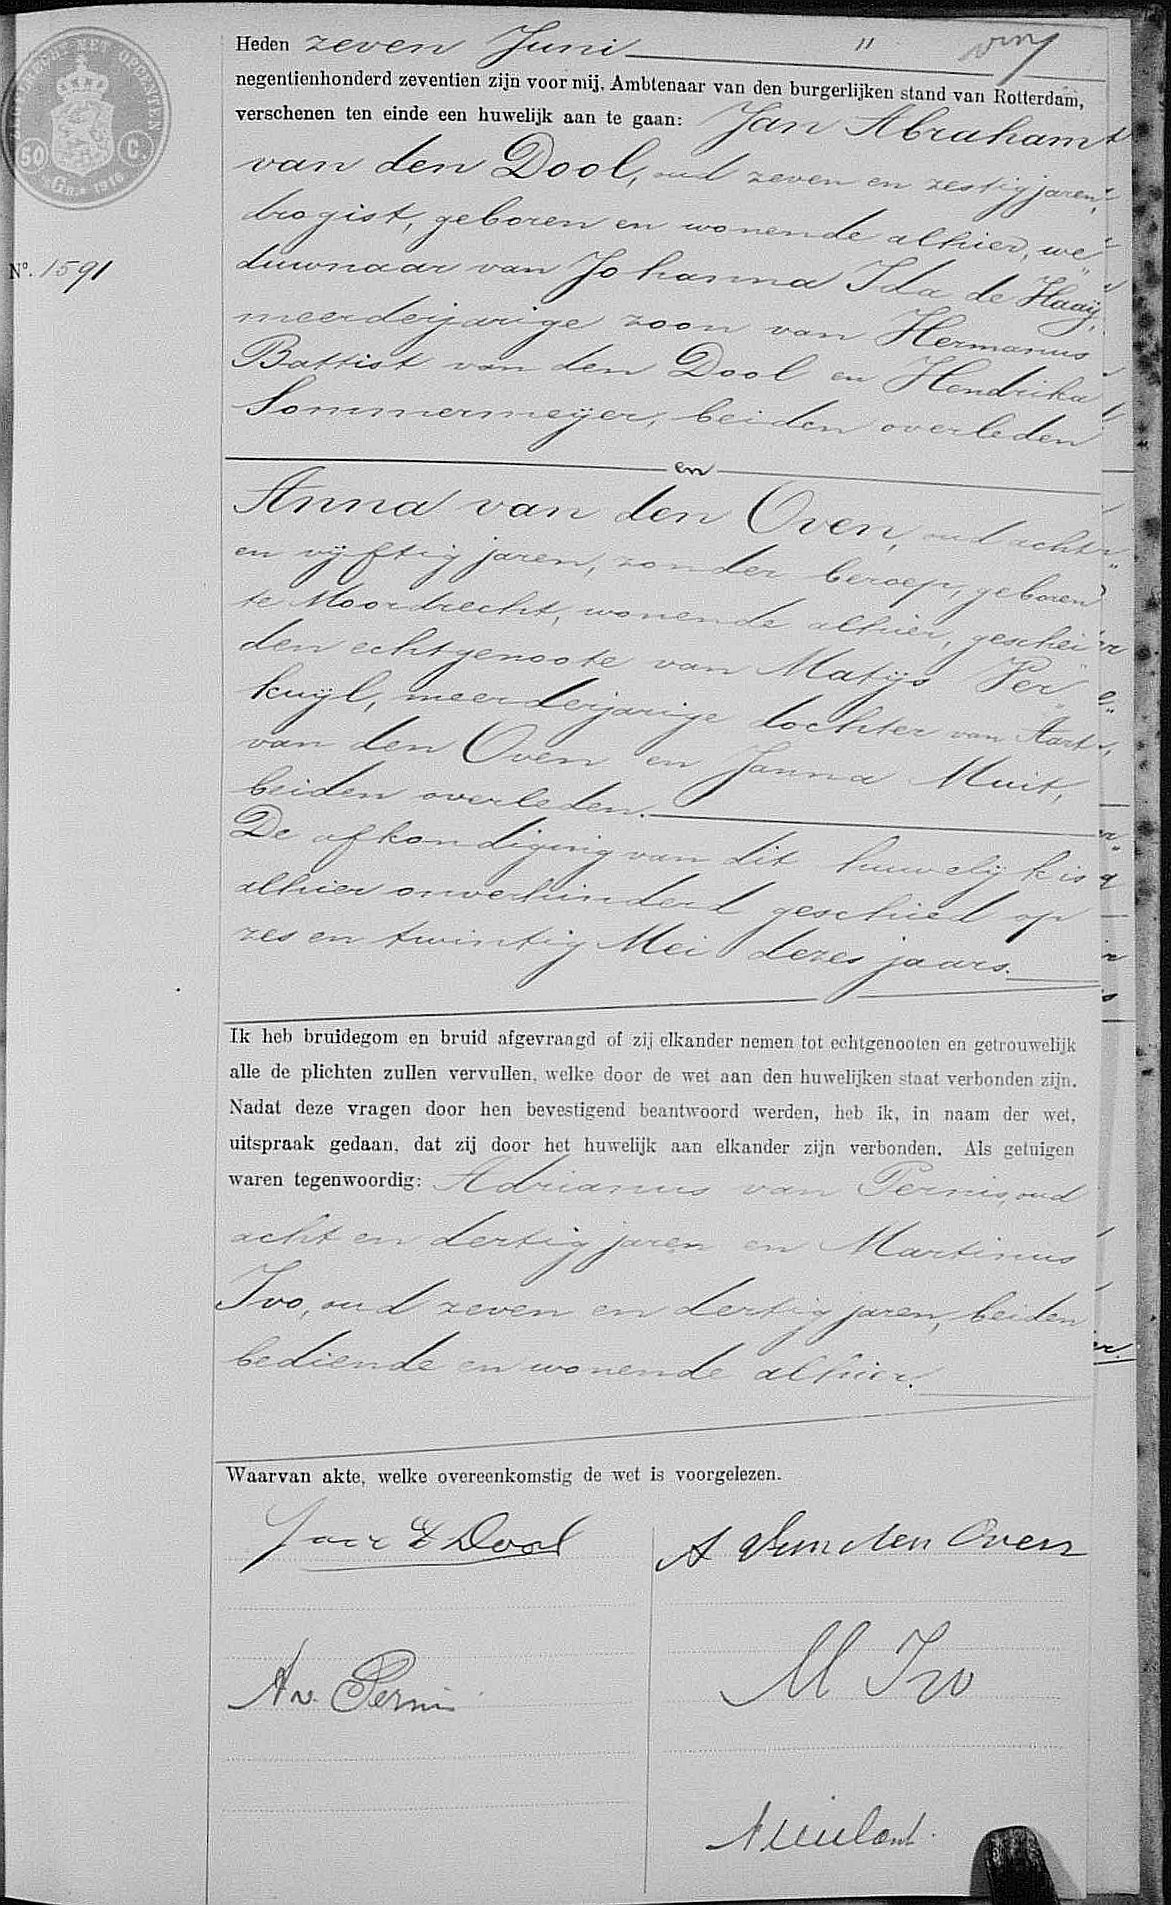 Heden zeven Juni "
negentienhonderd zeventien zijn voor mij, Ambtenaar van den burgerlijken stand van Rotterdam,
verschenen ten einde een huwelijk aan te gaan: Jan Abraham
van den Dool, oud zeven en zestig jaren,
drogist, geboren en wonende alhier, we"
duwnaar van Johanna Ida de Haaÿ,
No. 1591
meerderjarige zoon van Hermanus
Battist van den Dool en Hendrika
Sommermeÿer, beiden overleden
en
Anna van den Oven, oud acht
en vÿftig jaren, zonder beroep, geboren
te Moordrecht, wonende alhier, geschei"
den echtgenoote van Matÿs Per"
kuÿl, meerderjarige dochter van Aart
van den Oven en Janna Muit,
beiden overleden.
De afkondiging van dit huwelÿk is
alhier onverhinderd geschied op
zes en twintig Mei dezes jaars.
Ik heb bruidegom en bruid afgevraagd of zij elkander nemen tot echtgenooten en getrouwelijk
alle de plichten zullen vervullen, welke door de wet aan den huwelijken staat verbonden zijn.
Nadat deze vragen door hen bevestigend beantwoord werden, heb ik, in naam der wet,
uitspraak gedaan, dat zij door het huwelijk aan elkander zijn verbonden. Als getuigen
waren tegenwoordig: Adrianus van Pernis, oud
acht en dertig jaren en Martinus
Ivo, oud zeven en dertig jaren, beiden
bediende en wonende alhier.
Waarvan akte, welke overeenkomstig de wet is voorgelezen.
Dool A van den Oven
A v. Pernis M Ivo